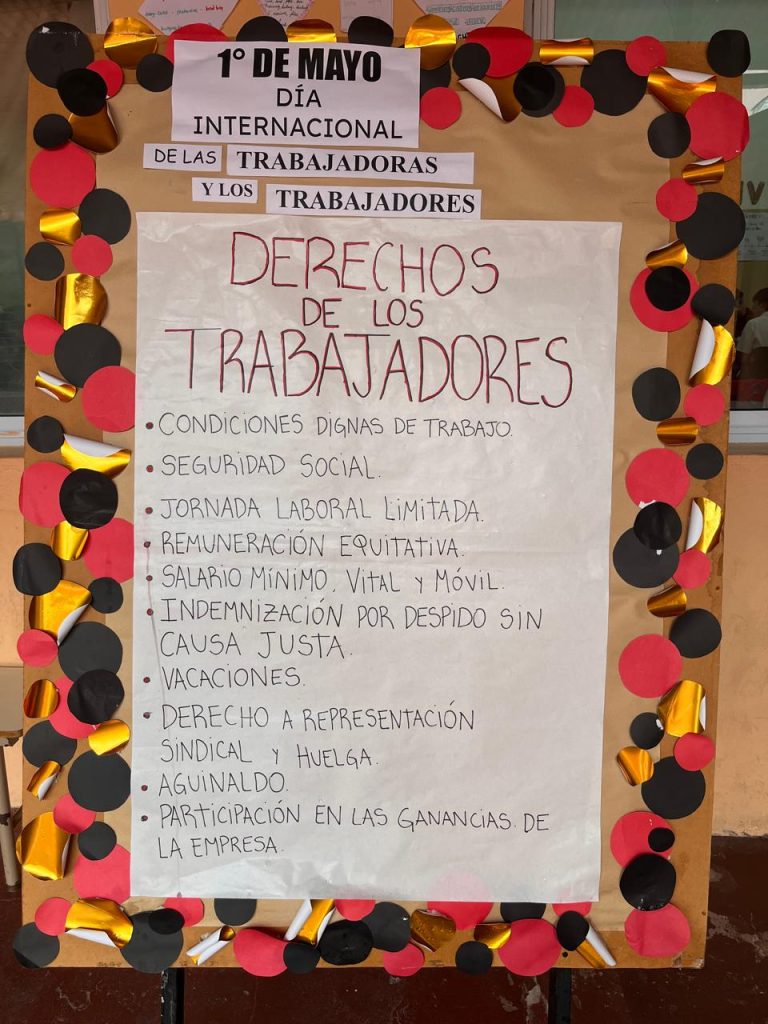 1° DE MAYO
DÍA
INTERNACIONAL
DE LAS TRABAJADORAS
Y LOS TRABAJADORES
DERECHOS
DE LOS
TRABAJADORES
• CONDICIONES DIGNAS DE TRABAJO.
• SEGURIDAD SOCIAL.
• JORNADA LABORAL LIMITADA.
• REMUNERACIÓN EQUITATIVA.
• SALARIO MÍNIMO, VITAL Y MÓVIL.
• INDEMNIZACIÓN POR DESPIDO SIN
CAUSA JUSTA.
• VACACIONES.
• DERECHO A REPRESENTACIÓN
SINDICAL Y HUELGA.
• AGUINALDO.
• PARTICIPACIÓN EN LAS GANANCIAS DE
LA EMPRESA.